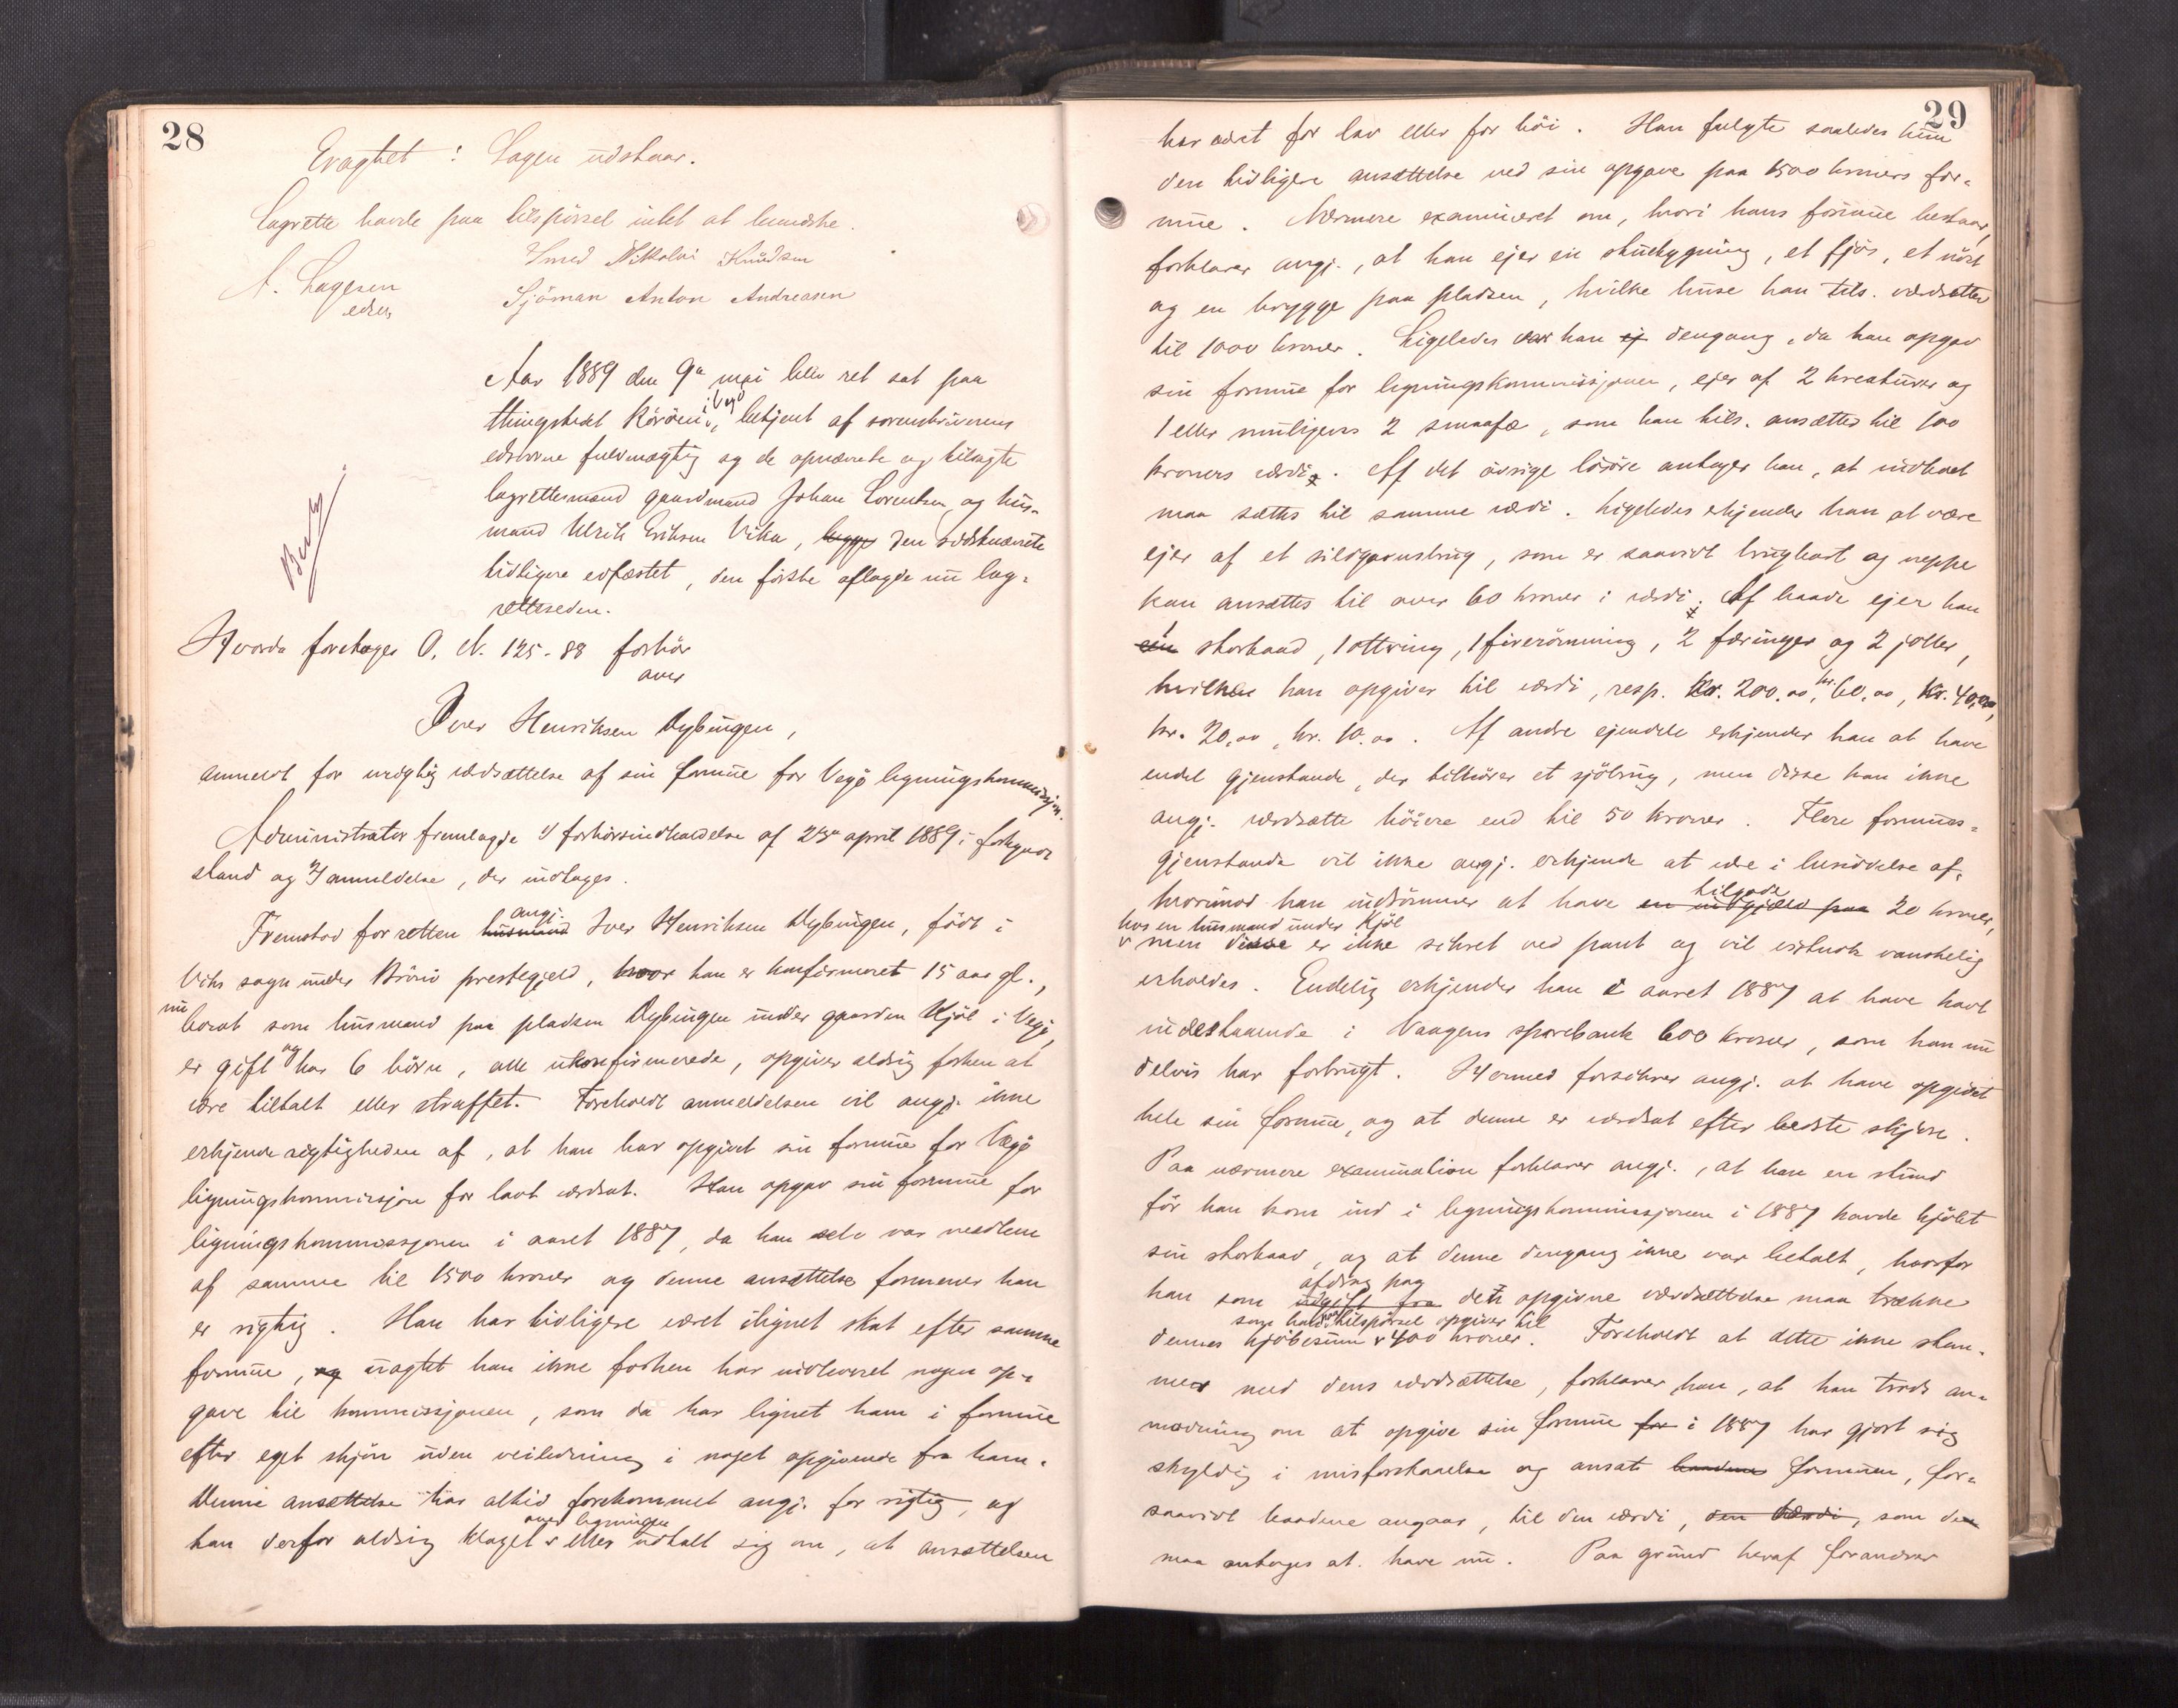 28
Eragtet: Sagen udstaar.
Lagrette havde paa tilspörsel intet at bemærke.
Smed Nikolai Knudsen
A. Lagesen
edsv
Sjöman Anton Andreasen
Aar 1889 den 9de mai blev ret sat paa
thingstedet Rörö i Vegö, betjent af sorenskriverens
edsvorne fuldmægtig og de opnævnte og tilsagte
lagrettesmænd gaardmand Johan Lorentsen og hus-
mand Ulrik Eriksen Vika, begge den sidstnævnte
tidligere edfæstet, den förste aflagde nu lag-
retteseden.
Hvorda foretoges O. N. 125-88 forhör
over
Iver Henriksen Dybingen,
anmeldt for urigtig værdsættelse af sin formue for Vegö ligningskommissjon.
Administrator fremlagde 1/ forhörsindkaldelse af 23de april 1889 i forkyndt
stand og 2/ anmeldelse, der indtages.
Fremstod for retten husmand angj. Iver Henriksen Dybingen, födt i
Viks sogn under Brönö prestegjeld, hvor han er konfirmeret 15 aar gl.,
nu bosat som husmand paa pladsen Dybingen under gaarden Kjöl i Vegö,
er gift og har 6 börn, alle ukonfirmerede, opgives aldrig forhen at
være tiltalt eller straffet. Foreholdt anmeldelsen vil angj. ikke
erkjende rigtigheden af, at han har opgivet sin formue for Vegö
ligningskommissjon for lavt værdsat. Han opgav sin formue for
ligningskommissjonen i aaret 1887, da han selv var medlem
af samme til 1500 kroner og denne ansættelse formener han
er rigtig. Han har tidligere været ilignet skat efter samme
formue, og uagtet han ikke forhen har indleveret nogen op-
gave til kommissjonen, som da har lignet ham i formue
efter eget skjön uden veiledning i noget opgivende fra ham.
Denne ansættelse har altid forekommet angj. for rigtig, og
han derfor aldrig klaget over ligningen eller udtalt sig om, at ansættelsen
29
har været for lav eller for höi. Han fulgte saaledes kun
den tidligere ansættelse ved sin opgave paa 1500 kroners for-
mue. Nærmere examineret om, hvori hans formue bestaar,
forklarer angj., at han ejer en stuebygning, et fjös, et nöst
og en brygge paa pladsen, hvilke huse han tils. værdsætter
til 1000 kroner. Ligeledes var han ej dengang, da han opgav
sin formue for ligningskommissjonen, ejer af 2 kreaturer og
1 eller muligens 2 smaafæ, som han tils. ansætter til 100
kroners værdi. Af det övrige lösöre antager han, at indboet
maa sættes til samme værdi. Ligeledes erkjender han at være
ejer af et sildgarnsbrug, som er saavidt brugbart og neppe
kan ansættes til over 60 kroner i værdi. Af baade ejer han
en 1 storbaad, 1 ottring, 1 firerömming, 2 færinger og 2 joller,
hvilke han opgiver til værdi, resp. Kr. 200,00, kr. 60,00, Kr. 40,00,
kr. 20,00, kr. 10,00. Af andre ejendele erkjender han at have
endel gjenstande, der tilhörer et sjöbrug, men disse kan ikke
angj. værdsætte höiere end til 50 kroner. Flere formues-
gjenstande vil ikke angj. erkjende at være i besiddelse af.
hvorimod han indrömmer at have en indgjæld paa tilgode 20 kroner,
hos en husmand under Kjöl
men disse er ikke sikret ved pant og vil vistnok vanskelig
erholdes. Endelig erkjender han i aaret 1887 at have havt
indestaaende i Vaagens sparebank 600 kroner, som han nu
delvis har forbrugt. Hermed forsikrer angj. at have opgivet
hele sin formue, og at denne er værdsat efter bedste skjön.
Paa nærmere examination forklarer angj., at han en stund
för han kom ind i ligningskommissjonen i 1887 havde kjöbt
sin storbaad, og at denne dengang ikke var betalt, hvorfor
han som udgift fra afdrag paa den opgivne værdsættelse maa trække
som han paa tilspörsel opgiver til
dennes kjöbesum 400 kroner. Foreholdt at dette ikke stem-
mer med dens værdsættelse, forklarer han, at han trods an-
modning om at opgive sin formue for i 1887 har gjort sig
skyldig i misforstaaelse og ansat baadene formuen, for-
saavidt baadene angaar, til den værdi, den værdi, som de
maa antages at have nu. Paa grund heraf forandrer